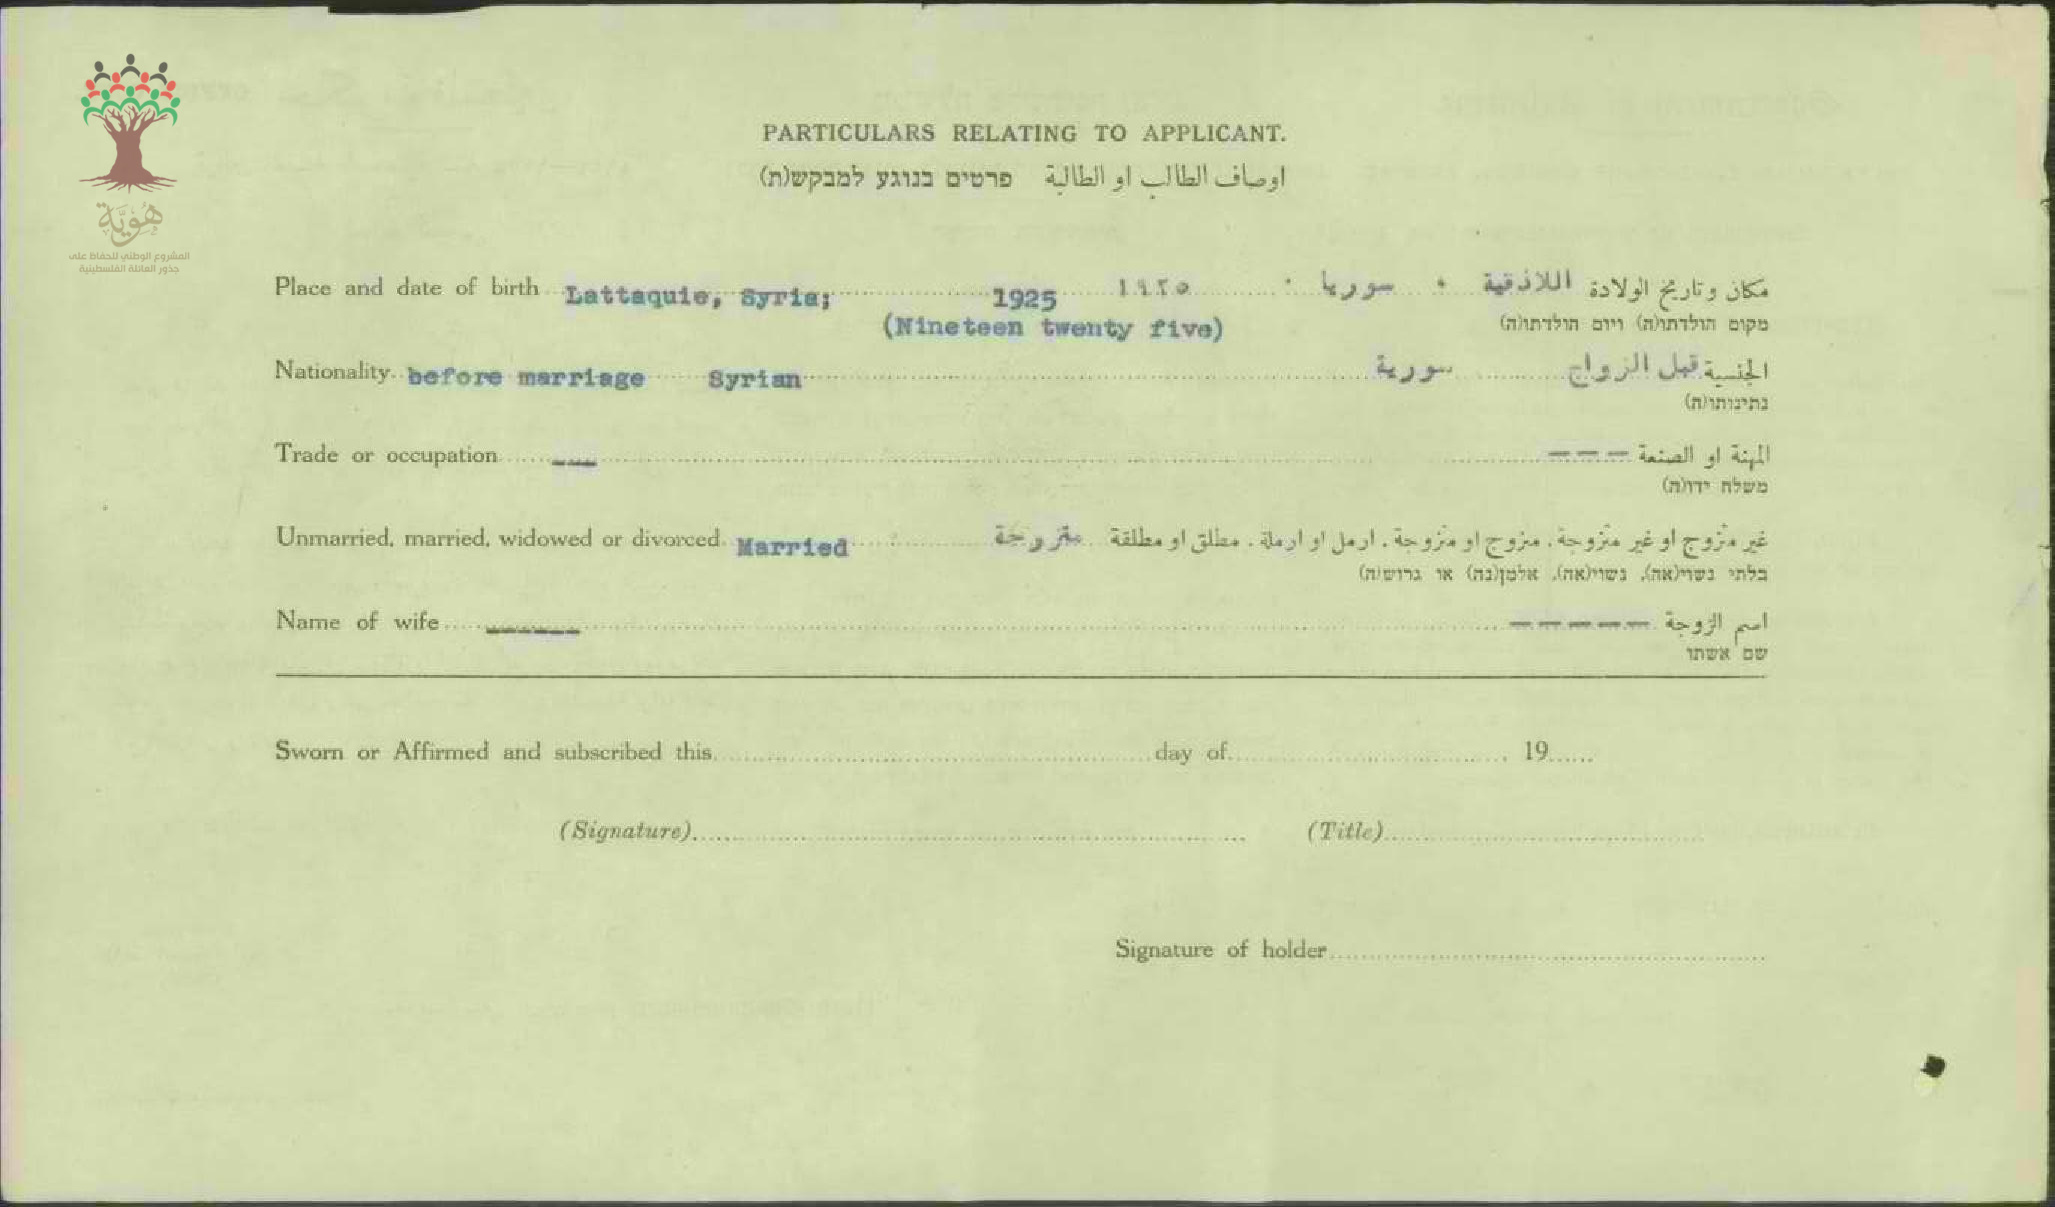 هُوِيَّة
المشروع الوطني للحفاظ على
جذور العائلة الفلسطينية
PARTICULARS RELATING TO APPLICANT.
اوصاف الطالب او الطالبة פרטים בנוגע למבקש(ת)
Place and date of birth Lattaquie, Syria; 1925 ١٩٢٥ مكان وتاريخ الولادة اللاذقية ٠ سوريا
(Nineteen twenty five) מקום הולדתו(ה) ויום הולדתו(ה)
Nationality before marriage Syrian الجنسية قبل الزواج سورية
נתינותו(ה)
Trade or occupation --- المهنة او الصنعة ---
משלח ידו(ה)
Unmarried, married, widowed or divorced Married غير متزوج او غير متزوجة. متزوج او متزوجة. ارمل او ارملة. مطلق او مطلقة متزوجة
בלתי נשוי(אה), נשוי(אה), אלמן(נה) או גרוש(ה)
Name of wife ------ اسم الزوجة -----
שם אשתו
Sworn or Affirmed and subscribed this day of 19
(Signature) (Title)
Signature of holder